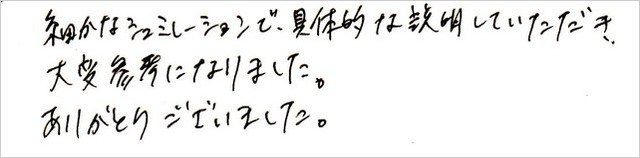 細かなシュミレーションで、具体的な説明していただき、
大変参考になりました。
ありがとうございました。